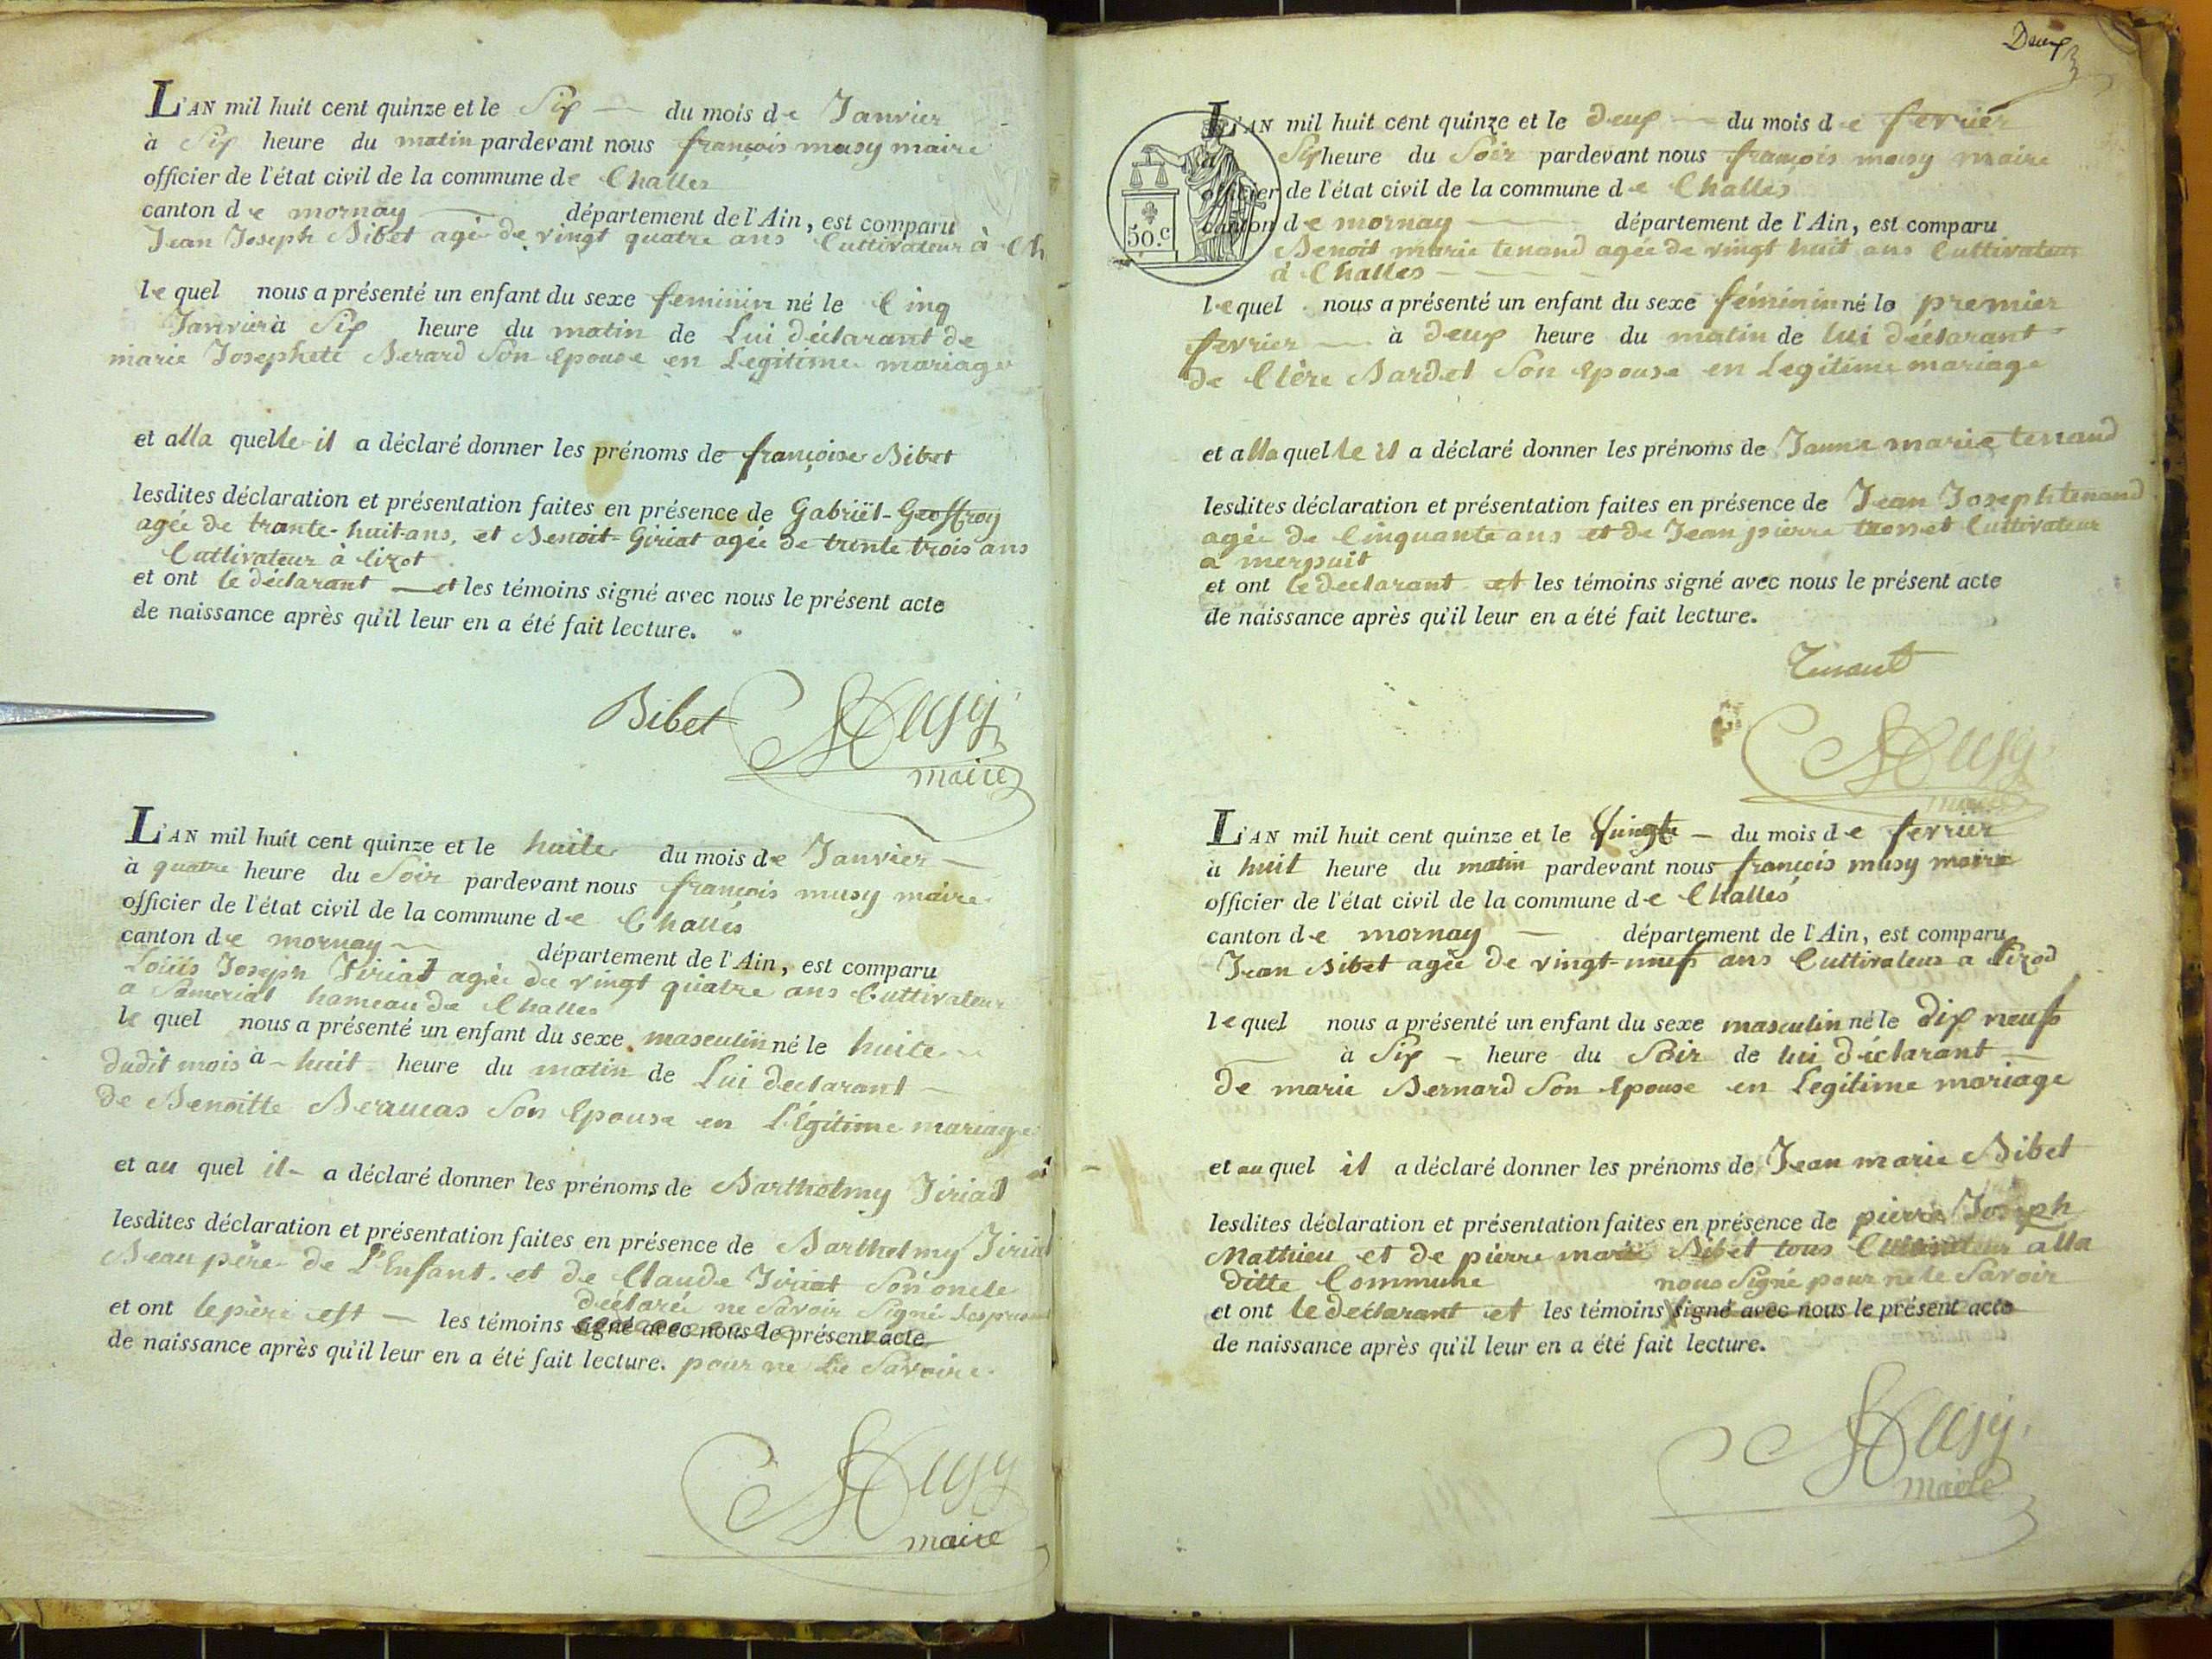 L'AN mil huit cent quinze et le Six du mois de Janvier
à Six heure du matin pardevant nous françois musy maire
officier de l'état civil de la commune de Challes
canton de mornay département de l'Ain, est comparu
Jean Joseph Bibet agée de vingt quatre ans Cultivateur à Ch
lequel nous a présenté un enfant du sexe feminin né le Cinq
Janvier à Six heure du matin de Lui déclarant de
marie Josephete Berard Son Epouse en Legitime mariage
et alla quelle il a déclaré donner les prénoms de françoise Bibet
lesdites déclaration et présentation faites en présence de Gabriël Geoffroy
agée de trante-huit-ans, et Benoit Giriat agée de trente trois ans
Cultivateur à Cizot
et ont le déclarant et les témoins signé avec nous le présent acte
de naissance après qu'il leur en a été fait lecture.
Bibet Musy
maire
L'AN mil huit cent quinze et le huite du mois de Janvier
à quatre heure du Soir pardevant nous françois musy maire
officier de l'état civil de la commune de Challes
canton de mornay département de l'Ain, est comparu
Loüis Joseph Tiriat agée de vingt quatre ans Cultivateur
a Sameriat hameau de Challes
le quel nous a présenté un enfant du sexe masculin né le huite
dudit mois à huit heure du matin de Lui declarant
de Benoitte Son Epouse en Légitime mariage
et au quel il a déclaré donner les prénoms de Bartholmy Tiriat
lesdites déclaration et présentation faites en présence de Bartholmy Tiriat
Beau père de L'Enfant et de Claude Tiriat Son oncle
déclaré ne Savoir Signé
et ont le père est les témoins signé avec nous le présent acte
de naissance après qu'il leur en a été fait lecture. pour ne Le Savoire
Musy
maire
Deux
L'AN mil huit cent quinze et le deux du mois de fevrier
à Six heure du Soir pardevant nous françois musy maire
officier de l'état civil de la commune de Challes
canton de mornay département de l'Ain, est comparu
50.c
Benoit marie tenand agée de vingt huit ans Cultivateur
à Challes
lequel nous a présenté un enfant du sexe féminin né le premier
fevrier à deux heure du matin de lui déclarant
de Clère Bardet Son Epouse en Legitime mariage
et alla quelle il a déclaré donner les prénoms de Janne marie tenand
lesdites déclaration et présentation faites en présence de Jean Joseph tenand
agée de Cinquante ans et de Jean pierre Cultivateur
a merpuit
et ont le declarant et les témoins signé avec nous le présent acte
de naissance après qu'il leur en a été fait lecture.
Tenant
Musy
maire
L'AN mil huit cent quinze et le Vingte du mois de fevrier
à huit heure du matin pardevant nous françois musy maire
officier de l'état civil de la commune de Challes
canton de mornay département de l'Ain, est comparu
Jean Bibet agée de vingt-neuf ans Cultivateur a Sizod
lequel nous a présenté un enfant du sexe masculin né le dix neufs
à Six heure du Soir de lui déclarant
de marie Bernard Son Epouse en Legitime mariage
et au quel il a déclaré donner les prénoms de Jean marie Bibet
lesdites déclaration et présentation faites en présence de pierre Joseph
Mathieu et de pierre marie Bibet tous Cultivateur alla
ditte Commune nous Signé pour ne le Savoir
et ont le declarant et les témoins signé avec nous le présent acte
de naissance après qu'il leur en a été fait lecture.
Musy
maire